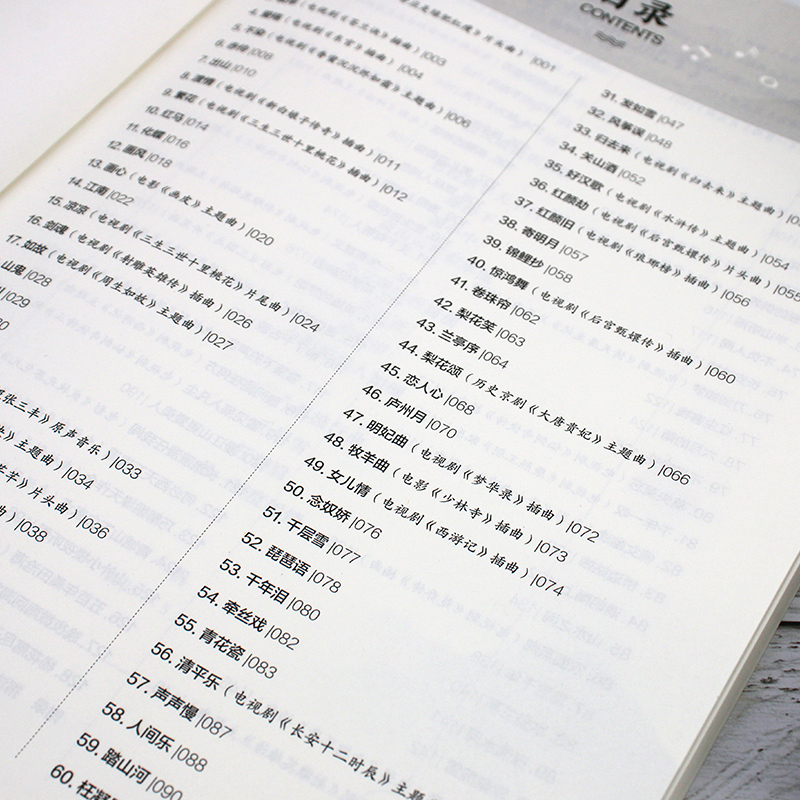 目录
CONTENTS
正是绿肥红瘦》片头曲）|001
（电视剧《苍兰诀》插曲）|003
（电视剧《东宫》插曲）|004
5. 不染（电视剧《香蜜沉沉烬如霜》主题曲）|006
6. 赤伶|008
7. 出山|010
8. 渡情（电视剧《新白娘子传奇》插曲）|011
9. 繁花（电视剧《三生三世十里桃花》插曲）|012
10. 红马|014
11. 化蝶|016
12. 画风|018
13. 画心（电影《画皮》主题曲）|020
14. 江南|022
15. 凉凉（电视剧《三生三世十里桃花》片尾曲）|024
16. 剑魂（电视剧《射雕英雄传》插曲）|026
17. 如故（电视剧《周生如故》主题曲）|027
山鬼|028
|029
张三丰》原声音乐）|033
》主题曲）|034
》片头曲）|036
曲）|038
31. 发如雪|047
32. 风筝误|048
33. 归去来（电视剧《归去来》主题曲）
34. 关山酒|052
35. 好汉歌（电视剧《水浒传》主题曲）|054
36. 红颜劫（电视剧《后宫甄嬛传》片头曲）|055
37. 红颜旧（电视剧《琅琊榜》插曲）|056
38. 寄明月|057
39. 锦鲤抄|058
40. 惊鸿舞（电视剧《后宫甄嬛传》插曲）|060
41. 卷珠帘|062
42. 梨花笑|063
43. 兰亭序|064
44. 梨花颂（历史京剧《大唐贵妃》主题曲）|066
45. 恋人心|068
46. 庐州月|070
47. 明妃曲（电视剧《梦华录》插曲）|072
48. 牧羊曲（电影《少林寺》插曲）|073
49. 女儿情（电视剧《西游记》插曲）|074
50. 念奴娇|076
51. 千层雪|077
52. 琵琶语|078
53. 千年泪|080
54. 牵丝戏|082
55. 青花瓷|083
56. 清平乐（电视剧《长安十二时辰》主题
57. 声声慢|087
58. 人间乐|088
59. 踏山河|090
60. 枉凝